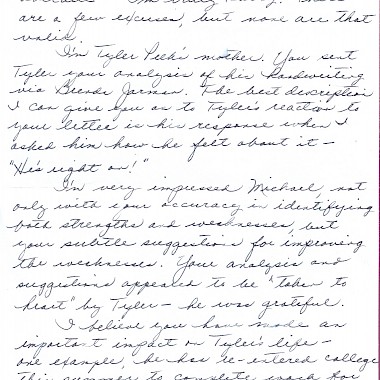 are a few excuses, but none are that
valid.
I'm Tyler Peek's mother. You sent
Tyler your analysis of his handwriting
via Brenda Jarman. The best description
I can give you as to Tyler's reaction to
your letter is his response when I
asked him how he felt about it -
"He's right on!"
I'm very impressed Michael, not
only with your accuracy in identifying
both strengths and weaknesses, but
your subtle suggestions for improving
the weaknesses. Your analysis and
suggestions appeared to be "taken to
heart" by Tyler - he was grateful.
I believe you have made an
important impact on Tyler's life -
one example, he has re-entered college
this summer to complete work for